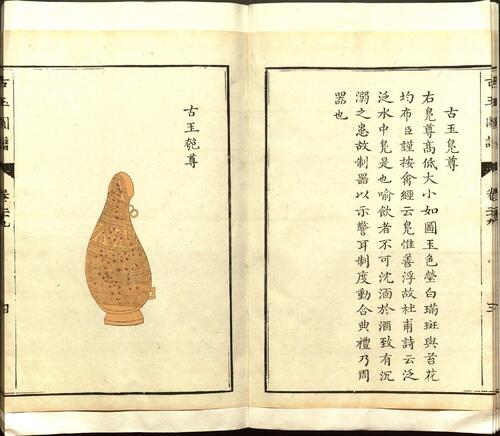 古玉鳧尊
右鳧尊高低大小如圖玉色瑩白璊斑與苔花
均布臣謹按禽經云鳧惟善浮故杜甫詩云泛
泛水中鳧是也喻飲者不可沈湎於酒致有沉
溺之患故制器以示警耳制度動合典禮乃周
器也
古玉圖譜
三
古玉匏尊
古玉圖譜
四